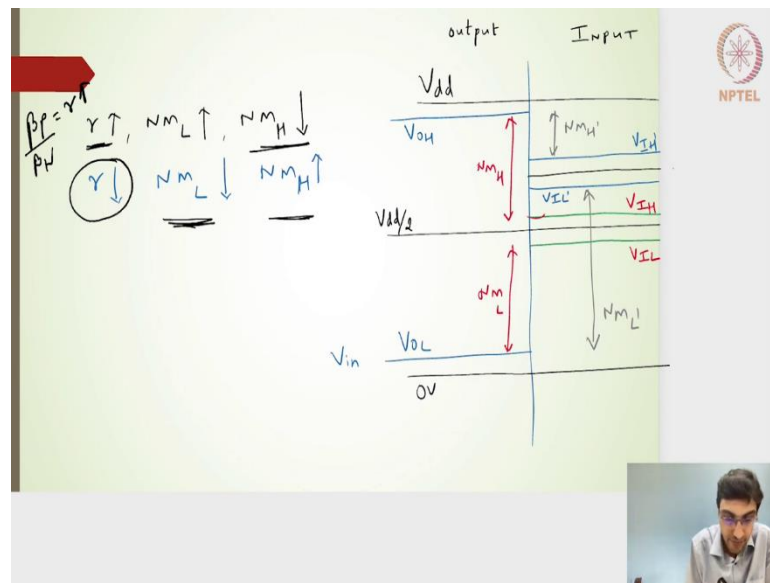 output INPUT
NPTEL
Vdd
βP/βN = r↑ r↑, NML↑, NMH↓
VOH
NMH'
VIH'
r↓ NML↓ NMH↑
NMH
VIL'
VIH
Vdd/2
VIL
NML
NML'
Vin VOL
0V